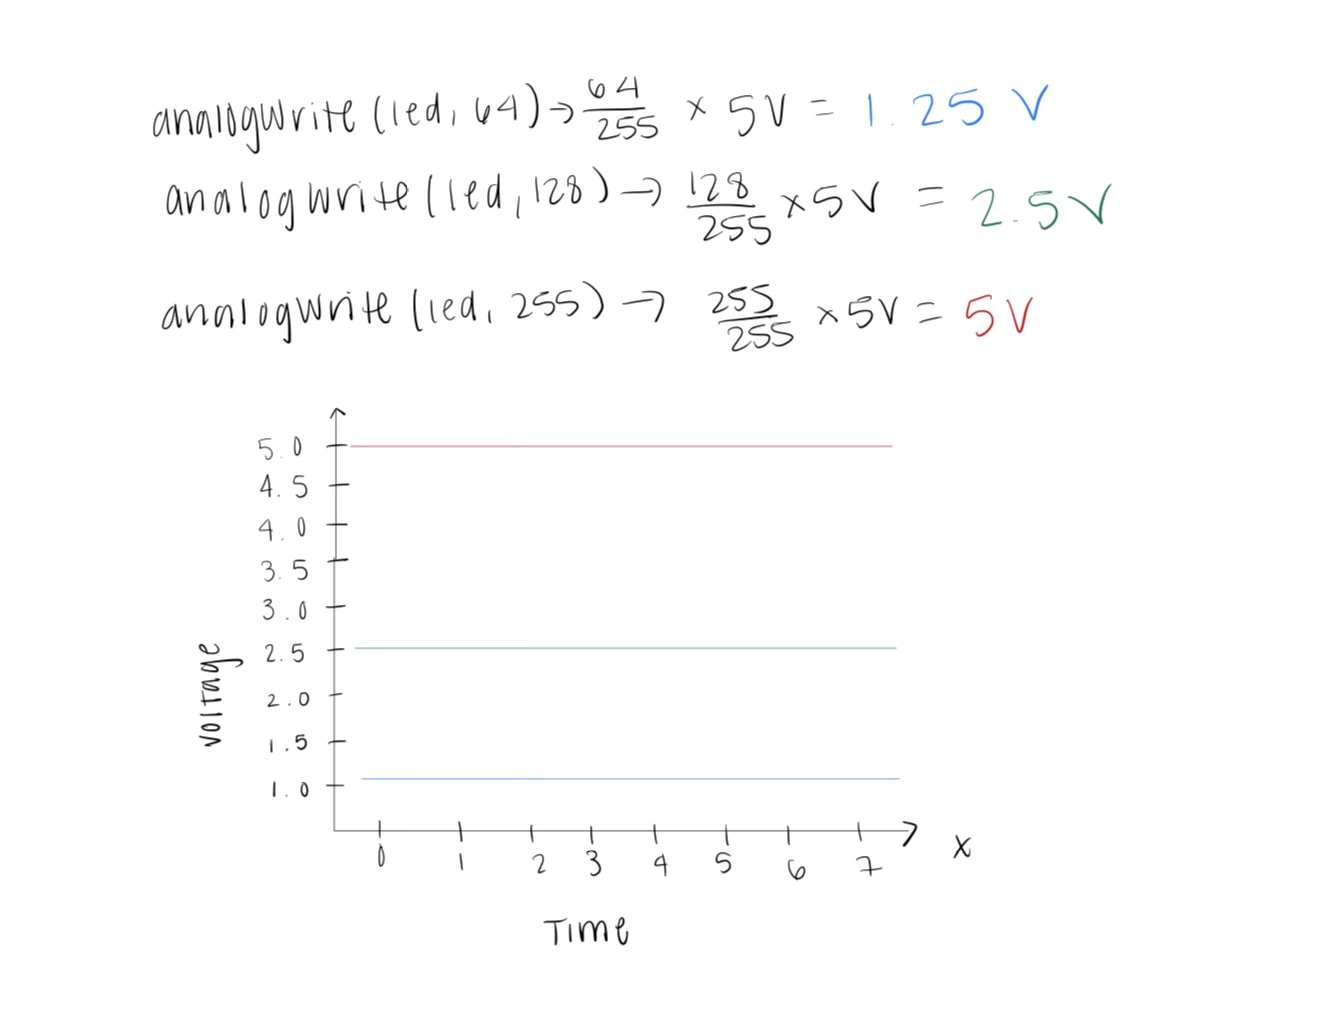 analogWrite (led, 64) → 64/255 × 5V = 1.25 V
analogWrite (led, 128) → 128/255 × 5V = 2.5V
analogWrite (led, 255) → 255/255 × 5V = 5V
5.0
4.5
4.0
3.5
3.0
2.5
2.0
1.5
1.0
voltage
0 1 2 3 4 5 6 7
x
Time